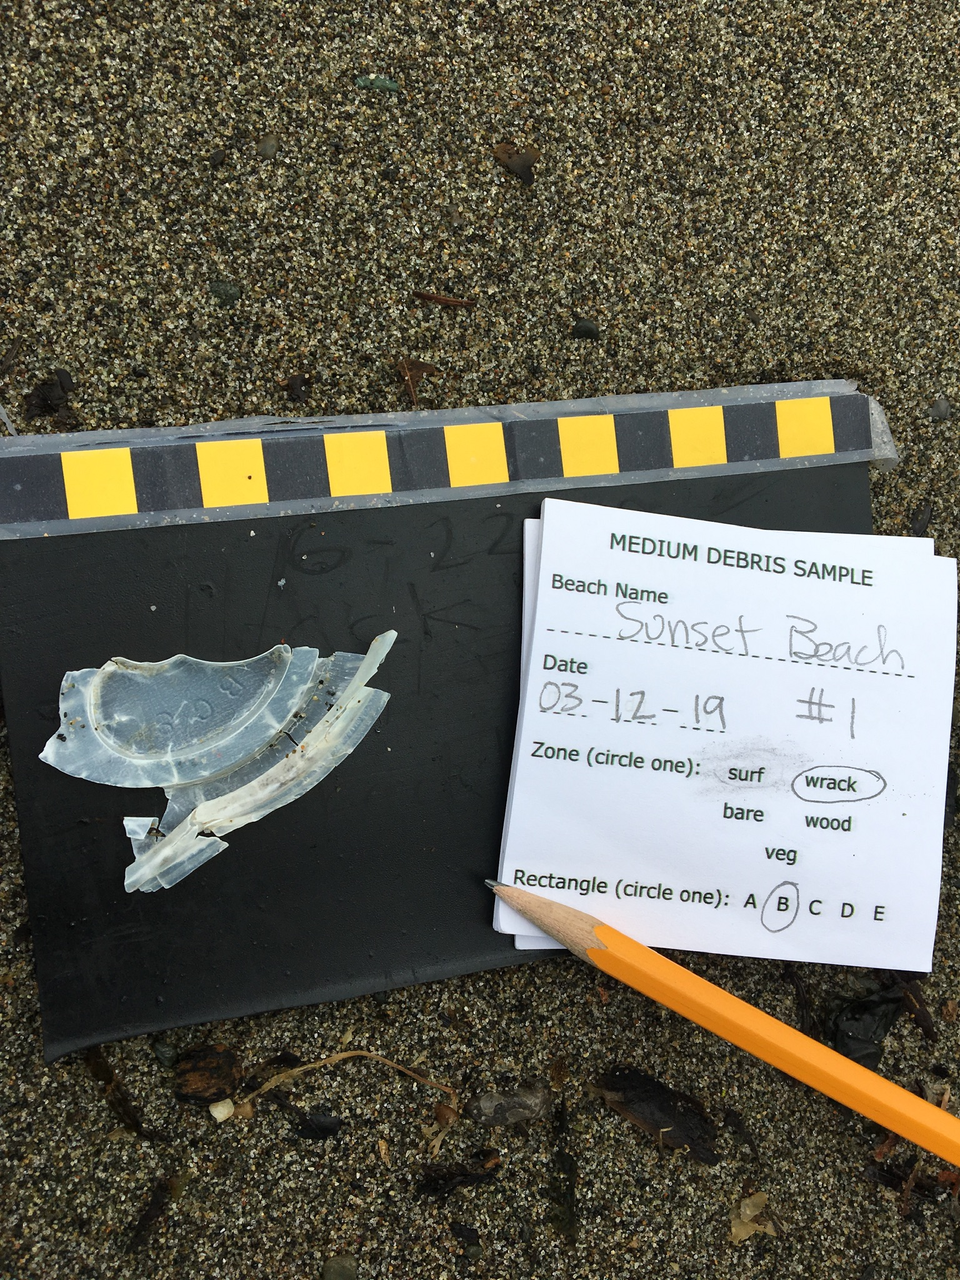 6-22
MEDIUM DEBRIS SAMPLE
Beach Name
Sunset Beach
Date
03-12-19 #1
Zone (circle one): surf wrack
bare wood
veg
Rectangle (circle one): A B C D E